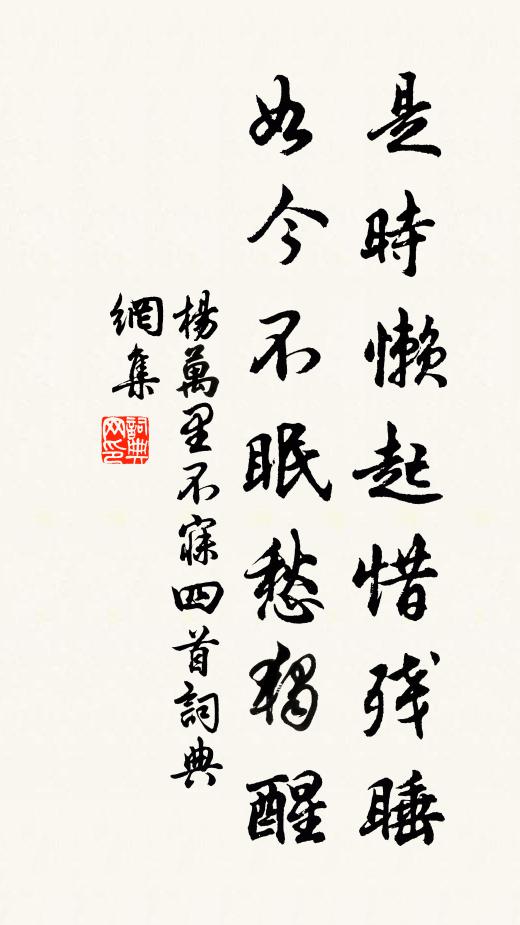 是時懶起惜残睡
如今不眠愁独醒
楊萬里不寐四首詞典
網集
詞典
网印